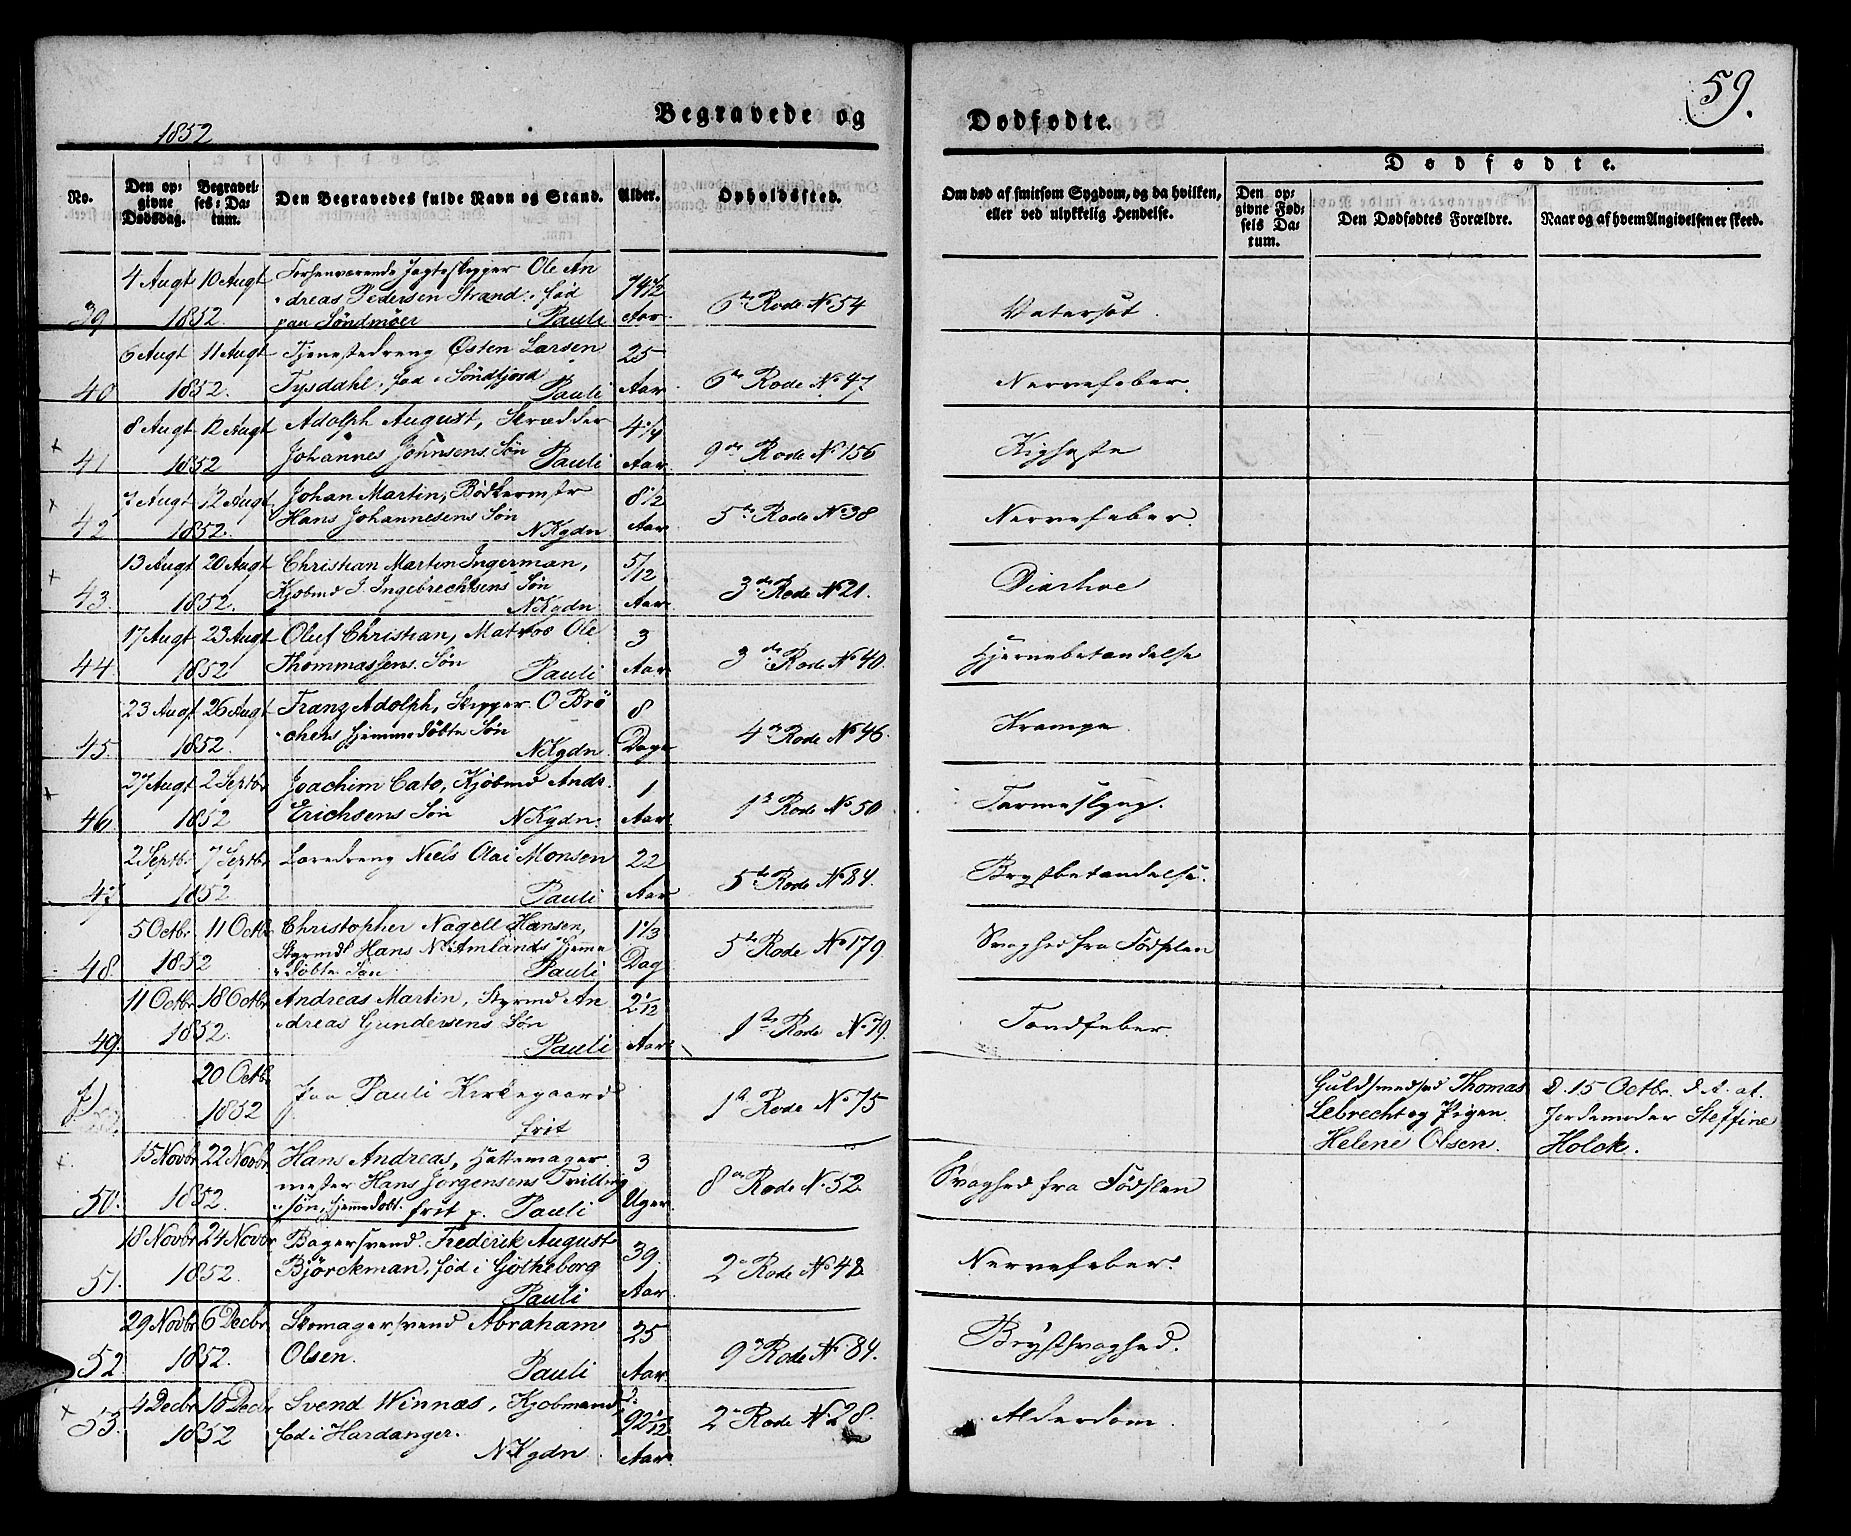 59.
1852
Begravede og
Dødfødte.
No.
Den op-
givne
Dødsdag.
Begravel-
ses-Da-
tum.
Den Begravedes fulde Navn og Stand.
Alder.
Opholdssted.
Om død af smitsom Sygdom, og da hvilken,
eller ved ulykkelig Hendelse.
Dødfødte.
Den op-
givne Fød-
sels Da-
tum.
Den Dødfødtes Forældre.
Naar og af hvem Angivelsen er skeed.
39
4 Augt 10 Augt
1852.
Forhenværende Jagteskipper Ole An
dreas Pedersen Strand, fød
paa Søndmøer Pauli
74 1/2
Aar
6te Rode No 54
Vatersot.
40
6 Augt 11 Augt
1852.
Tjenestedreng Østen Larsen
Tysdahl, fød i Søndfjord
Pauli
25
Aar
6te Rode No 47
Nervefeber.
+ 41
8 Augt 12 Augt
1852
Adolph August, Skrædder
Johannes Johnsens Søn Pauli
4 1/4
Aar
9de Rode No 156
Kighoste
+ 42
7 Augt 12 Augt
1852.
Johan Martin, Bødkermstr
Hans Johannesens Søn
N Kgdn
8 1/2
Aar
5te Rode No 38
Nervefeber.
+ 43.
13 Augt 20 Augt
1852.
Christian Martin Ingerman,
Kjøbmd I. Ingebrechtsens Søn
N Kgdn
5/12
Aar
3de Rode No 21.
Diarhoe
44.
17 Augt 23 Augt
1852
Oluf Christian, Matros Ole
Thommassens Søn Pauli
3
Aar
3de Rode No 40.
Hjernebetændelse
45.
23 Augt 26 Augt
1852.
Franz Adolph, Skipper O Brø
chers hjemmedøbte Søn
N Kgdn.
8
Dage
4de Rode No 46.
Krampe
+ 46
27 Augt 2 Septbr
1852
Joachim Cato, Kjøbmd Ands.
Erichsens Søn N Kgdn.
1
Aar.
1ste Rode No 50
Tarmeslyng.
47
2 Septbr 7 Septbr
1852
Loredreng Niels Olai Monsen
Pauli
22
Aar
5te Rode No 84.
Brystbetændelse.
48
5 Octbr 11 Octbr
1852
Christopher Nagell Hansen,
Styrmd Hans Ns Amlands hjemme
døbte Søn Pauli
1 1/3
Dag
5te Rode No 179.
Svaghed fra Fødslen
49.
11 Octbr 18 Octbr
1852.
Andreas Martin, Styrmd An
dreas Gundersens Søn
Pauli
2 1/12
Aar
1ste Rode No 79.
Tandfeber.
20 Octbr
1852
Paa Pauli Kirkegaard
frit
1ste Rode No 75
Guldsmedsvd Thomas
Lebrecht og Pigen
Helene Olsen.
d. 15 Octbr. d. A. af
Jordemoder Steffine
Holck.
+ 50.
15 Novbr 22 Novbr
1852.
Hans Andreas, Hattemager
mester Hans Jorgensens Tvilling
søn, hjemmedøbt. frit p. Pauli
3
Uger.
8de Rode No 52.
Svaghed fra Fødslen
51.
18 Novbr 24 Novbr
1852.
Bagersvend Frederik August
Björckman, fød i Gøtheborg
Pauli
39.
Aar.
2de Rode No 48
Nervefeber.
52
29 Novbr 6 Decbr
1852.
Skomagersvend Abraham
Olsen. Pauli
25
Aar.
9de Rode No 84.
Brystsvaghed.
+ 53.
4 Decbr 10 Decbr
1852
Svend Winnæs, Kjøbmand,
fød i Hardanger.
N Kgdn
92 1/12
Aar.
2de Rode No 28.
Alderdom.